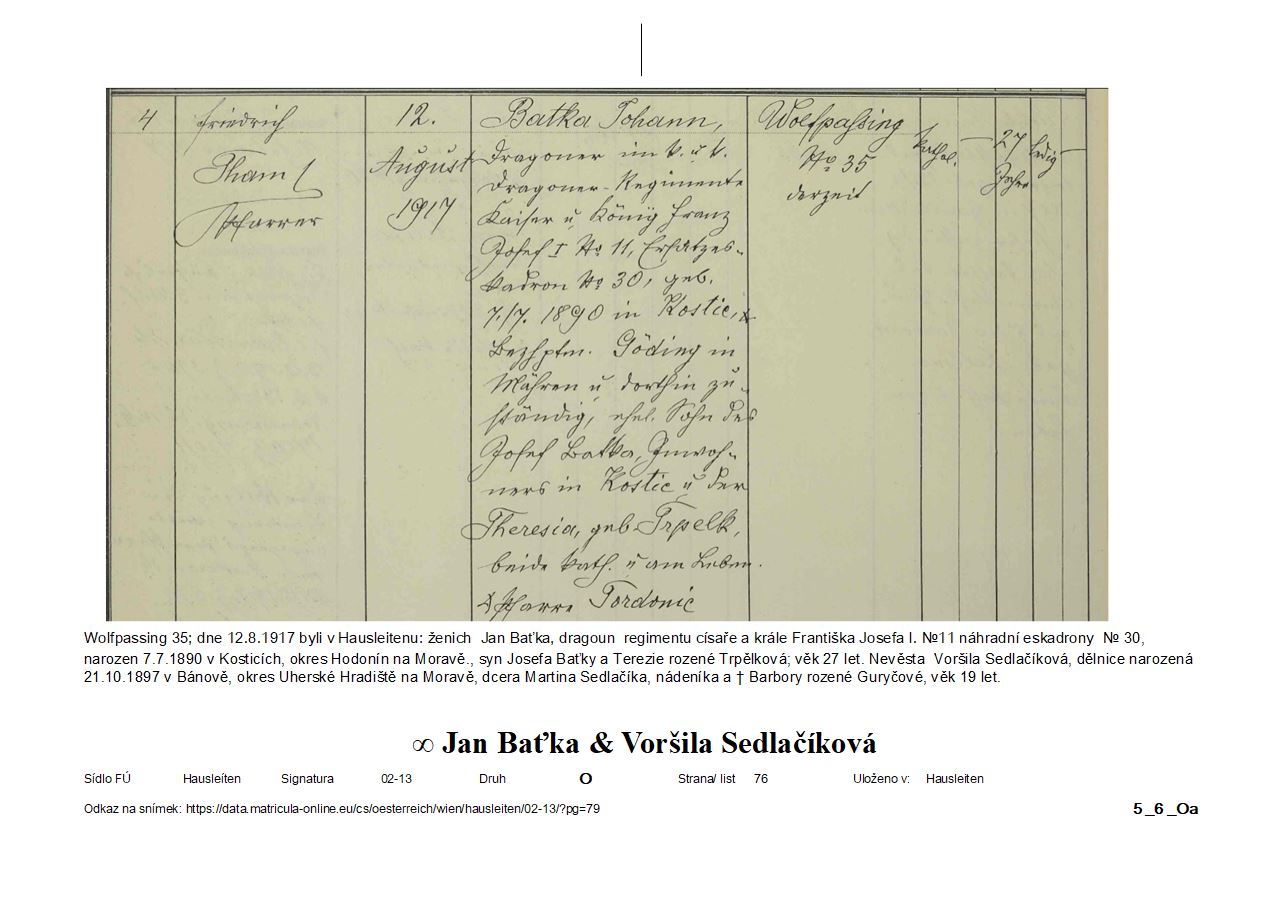 4
Friedrich
Tham
Pfarrer
12.
August
1917
Batka Johann,
Dragoner im k. u. k.
Dragoner-Regimente
Kaiser u. König Franz
Josef I No 11, Ersatzes-
kadron No 30, geb.
7./7. 1890 in Kostic, x
Bezhptm. Göding in
Mähren u. dorthin zu-
ständig, ehel. Sohn des
Josef Batka, Inwoh-
ners in Kostic u. der
Theresia, geb. Trpelk,
beide kath. u. am Leben.
x Pfarre Tordonic
Wolfpassing
No 35
derzeit
kathol.
27
Jahre
ledig
Wolfpassing 35; dne 12.8.1917 byli v Hausleitenu: ženich Jan Baťka, dragoun regimentu císaře a krále Františka Josefa I. №11 náhradní eskadrony № 30,
narozen 7.7.1890 v Kosticích, okres Hodonín na Moravě., syn Josefa Baťky a Terezie rozené Trpělková; věk 27 let. Nevěsta Voršila Sedlačíková, dělnice narozená
21.10.1897 v Bánově, okres Uherské Hradiště na Moravě, dcera Martina Sedlačíka, nádeníka a † Barbory rozené Guryčové, věk 19 let.
∞ Jan Baťka & Voršila Sedlačíková
Sídlo FÚ Hausleíten Signatura 02-13 Druh O Strana/ list 76 Uloženo v: Hausleiten
Odkaz na snímek: https://data.matricula-online.eu/cs/oesterreich/wien/hausleiten/02-13/?pg=79
5_6_Oa